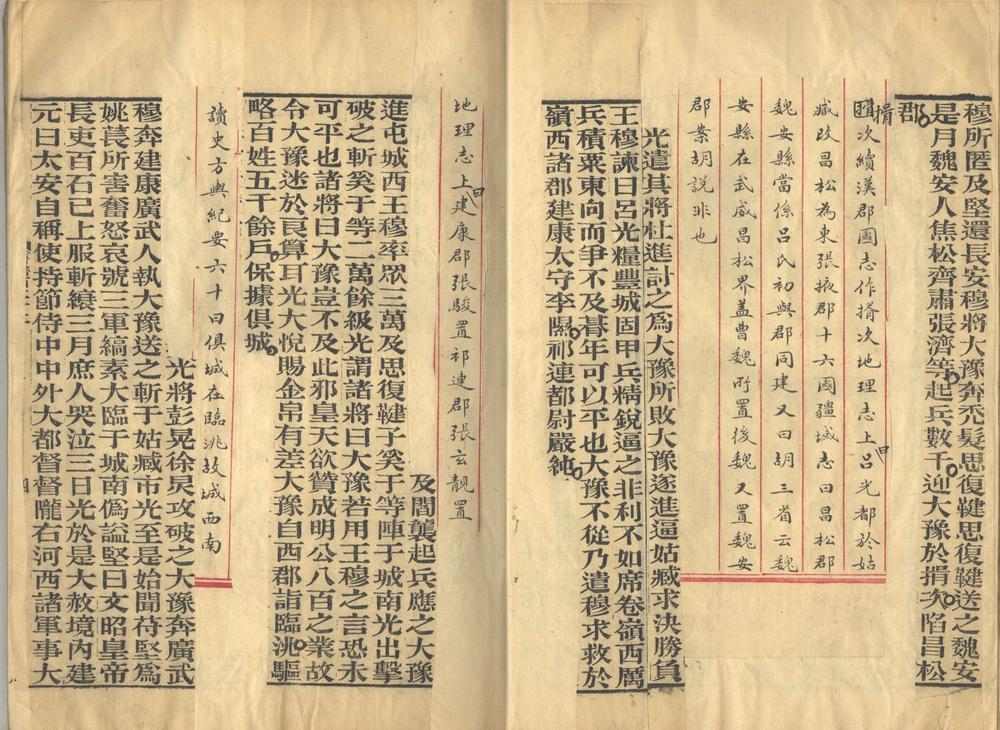 穆所匿及堅還長安穆將大豫奔禿髮思復鞬思復鞬送之魏安
是月魏安人焦松齊肅張濟等起兵數千迎大豫於揟次陷昌松
郡
揟
揟次續漢郡國志作揟次地理志上曰呂光都於姑
臧改昌松為東張掖郡十六國疆域志曰昌松郡
魏安縣當係呂氏初與郡同建又曰胡三省云魏
安縣在武威昌松界蓋曹魏所置後魏又置魏安
郡案胡說非也
光遣其將杜進討之爲大豫所敗大豫遂進逼姑臧求決勝負
王穆諫曰呂光糧豐城固甲兵精銳逼之非利不如席卷嶺西厲
兵積粟東向而爭不及朞年可以平也大豫不從乃遣穆求救於
嶺西諸郡建康太守李隰祁連都尉嚴純
地理志上曰建康郡張駿置祁連郡張玄靚置
及閻襲起兵應之大豫
進屯城西王穆率眾三萬及思復鞬子奚于等陣于城南光出擊
破之斬奚于等二萬餘級光謂諸將曰大豫若用王穆之言恐未
可平也諸將曰大豫豈不及此邪皇天欲贊成明公八百之業故
令大豫迷於良算耳光大悅賜金帛有差大豫自西郡詣臨洮驅
略百姓五千餘戶保據俱城
讀史方輿紀要六十曰俱城在臨洮故城西南
光將彭晃徐炅攻破之大豫奔廣武
穆奔建康廣武人執大豫送之斬于姑臧市光至是始聞苻堅爲
姚萇所害奮怒哀號三軍縞素大臨于城南僞謚堅曰文昭皇帝
長吏百石已上服斬縗三月庶人哭泣三日光於是大赦境內建
元曰太安自稱使持節侍中中外大都督督隴右河西諸軍事大